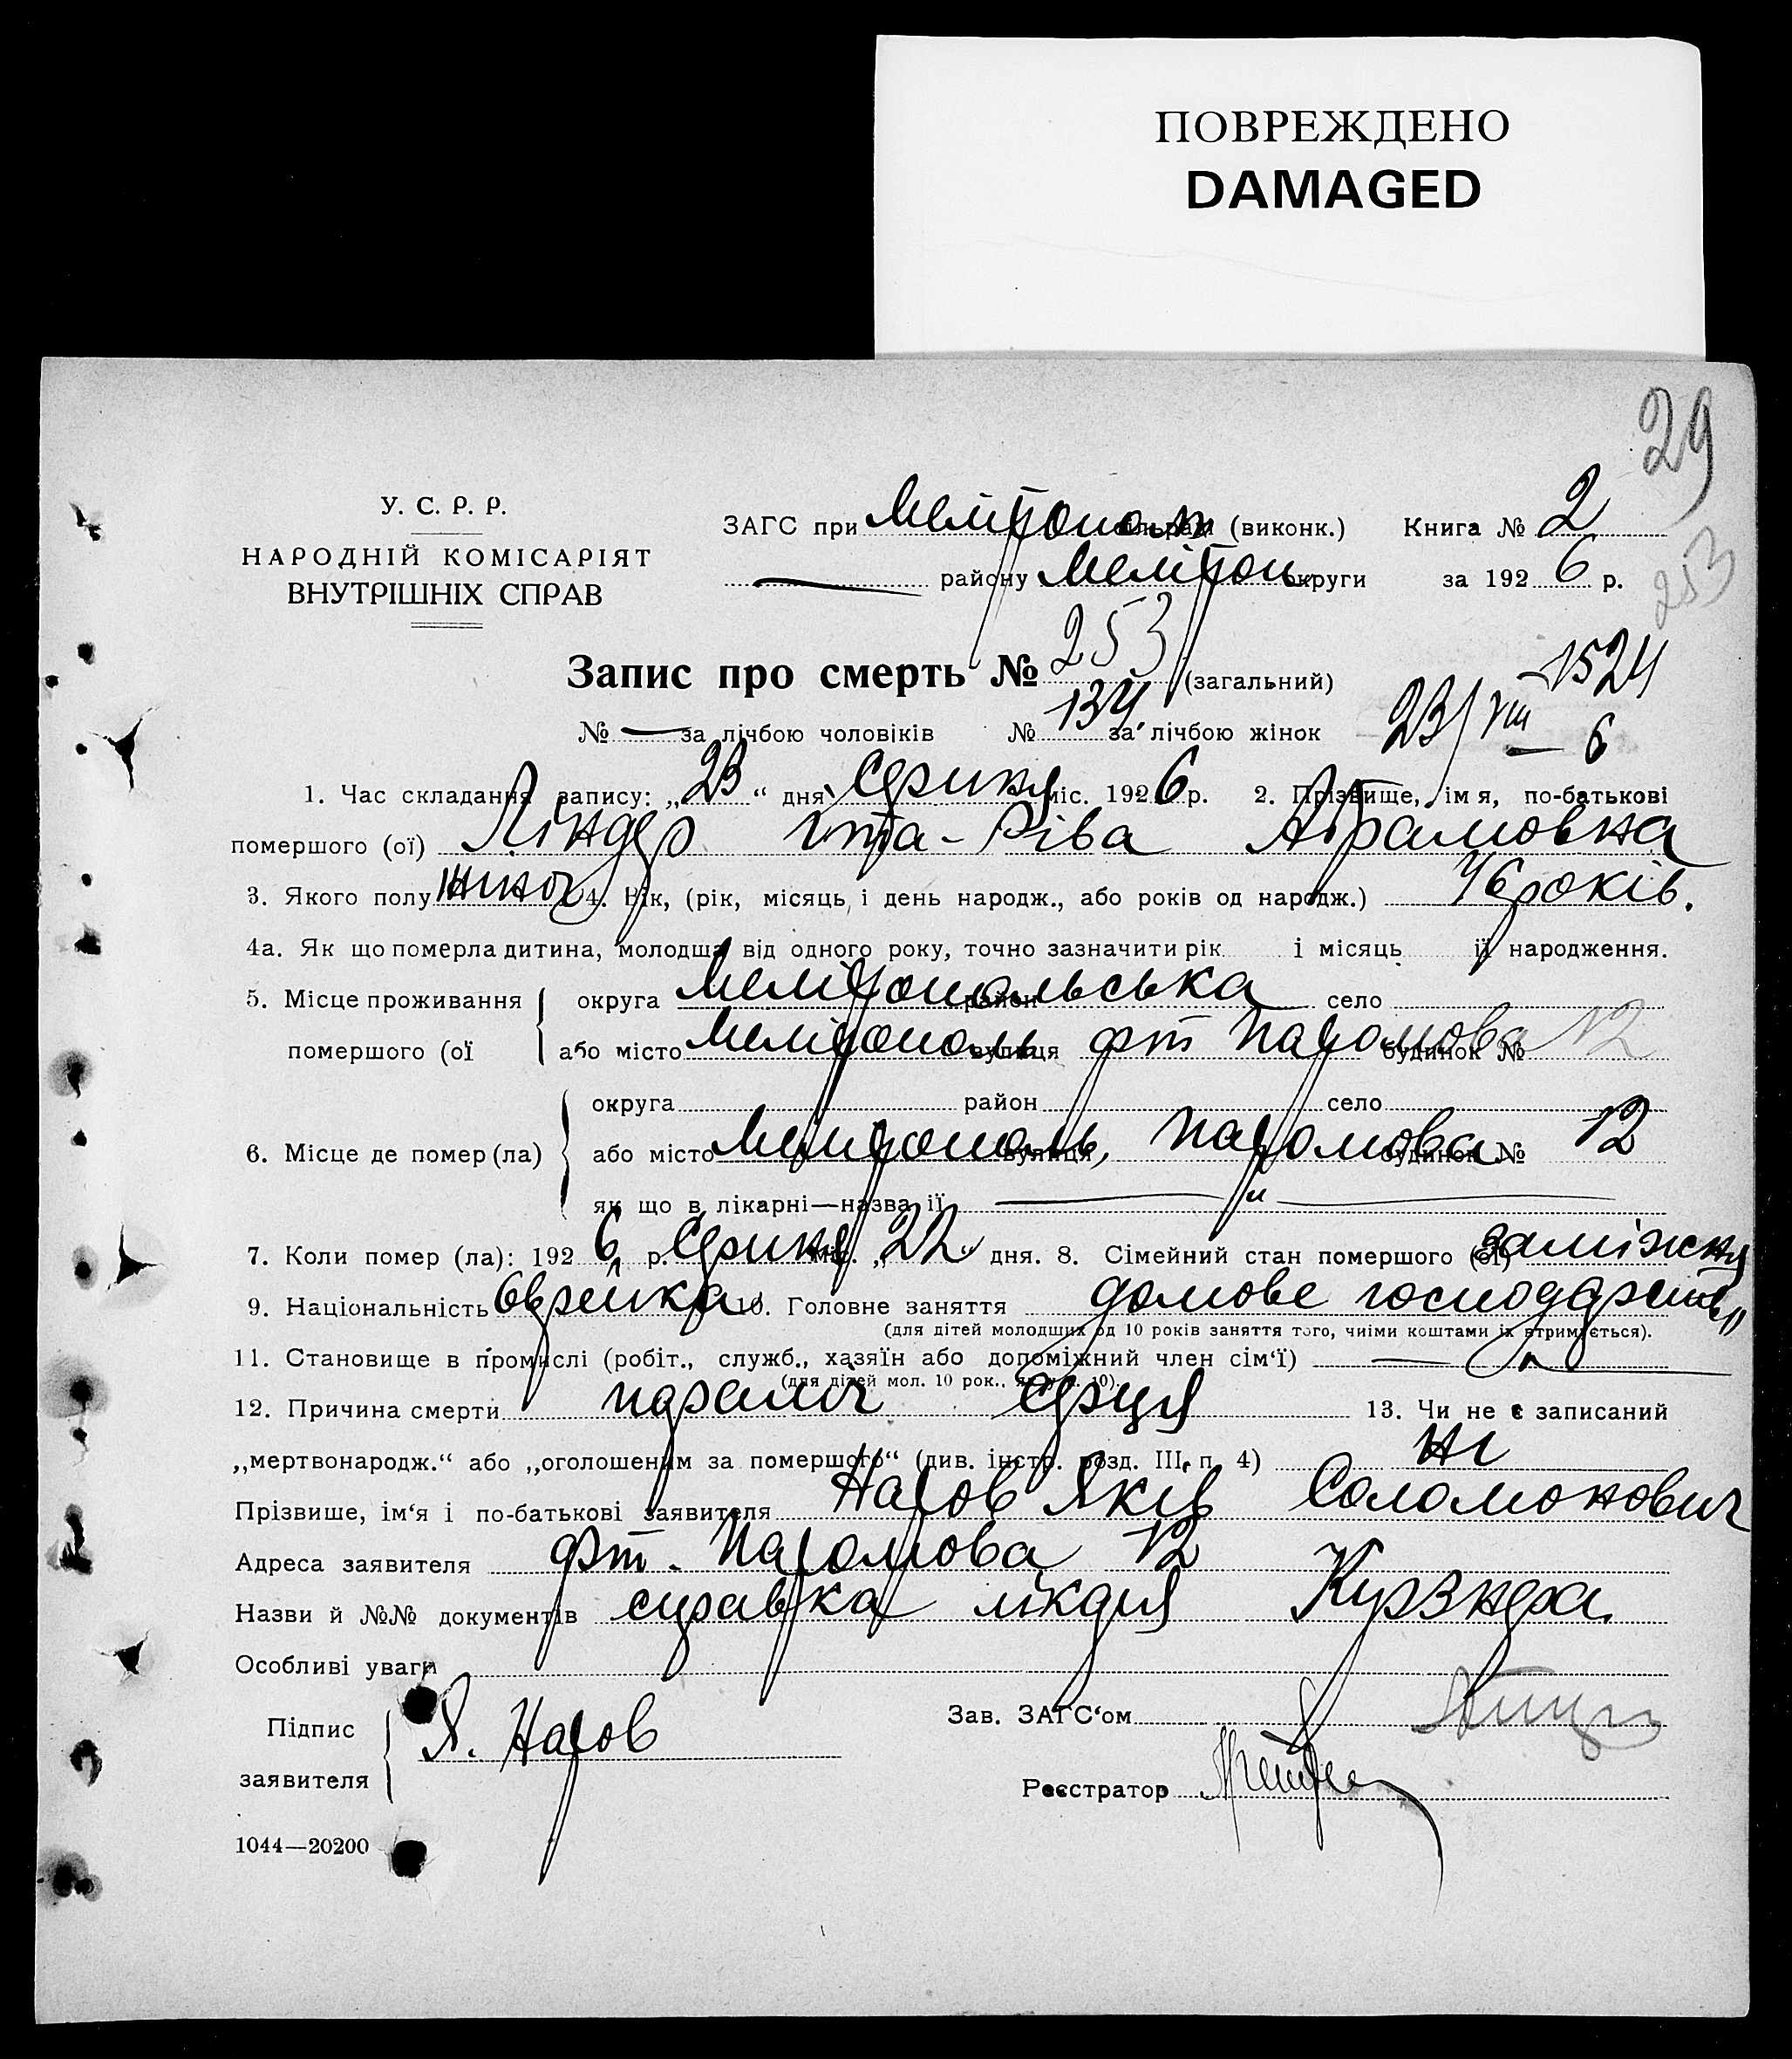 ПОВРЕЖДЕНО
DAMAGED
29
У. С. Р. Р.
НАРОДНІЙ КОМІСАРІЯТ
ВНУТРІШНІХ СПРАВ
ЗАГС при Мелітополь (виконк.) Книга № 2
— району Мелітоп округи за 192 6 р.
253
Запис про смерть № 253 (загальний)
1524
№ — за лічбою чоловіків № 134 за лічбою жінок 23/VIII – 6
1. Час складання запису: „23“ дня Серпня міс. 1926 р. 2. Прізвище, імя, по-батькові
помершого (ої) Ліндер Іта-Ріва Абрамовна
3. Якого полу жіноч 4. Вік, (рік, місяць, і день народж., або років од народж.) 46 років.
4а. Як що померла дитина, молодша від одного року, точно зазначити рік і місяць її народження.
5. Місце проживання округа Мелітопольська район село
помершого (ої або місто Мелітополь вулиця будинок № 12
округа район село
6. Місце де помер (ла) або місто Мелітополь, вулиця будинок № 12
як що в лікарні—назва її — „ —
7. Коли помер (ла): 1926 р. Серпня міс. „22“ дня. 8. Сімейний стан помершого (ої) заміжня
9. Національність Єврейка 10. Головне заняття домове господарство
(для дітей молодших од 10 років заняття того, чиїми коштами їх втримується).
11. Становище в промислі (робіт., служб., хазяїн або допоміжний член сім‘ї) — „ —
(для дітей мол. 10 рок., як у п. 10).
12. Причина смерти параліч серця 13. Чи не є записаний
„мертвонародж.“ або „оголошеним за помершого“ (див. інстр. розд. III, п. 4) Ні
Прізвише, ім‘я і по-батькові заявителя Яків Соломонович
Адреса заявителя 12
Назви й №№ документів справка лікаря
Особливі уваги
Підпис
заявителя Я.
Зав. ЗАГС‘ом
Реєстратор
1044—20200